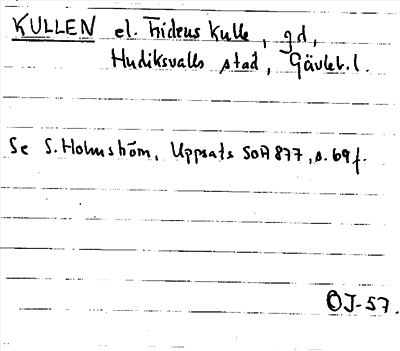 KULLEN el. Fridens Kulle, gd,
Hudiksvalls stad, Gävleb. l.
Se S. Holmström, Uppsats SOA 877, s. 69 f.
OJ-57.